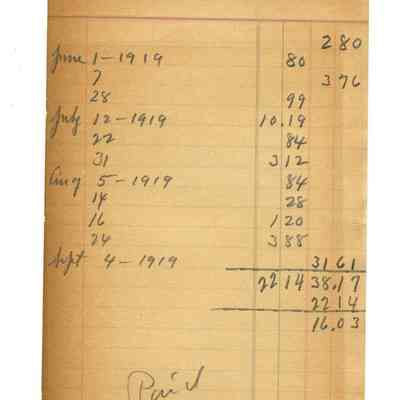 2 80
June 1-1919 80
7 3 76
28 99
July 12-1919 10.19
22 84
31 3 12
Aug 5-1919 84
14 28
16 1 20
24 3 88
Sept 4-1919 31 61
22 14 38.17
22 14
16.03
Paid